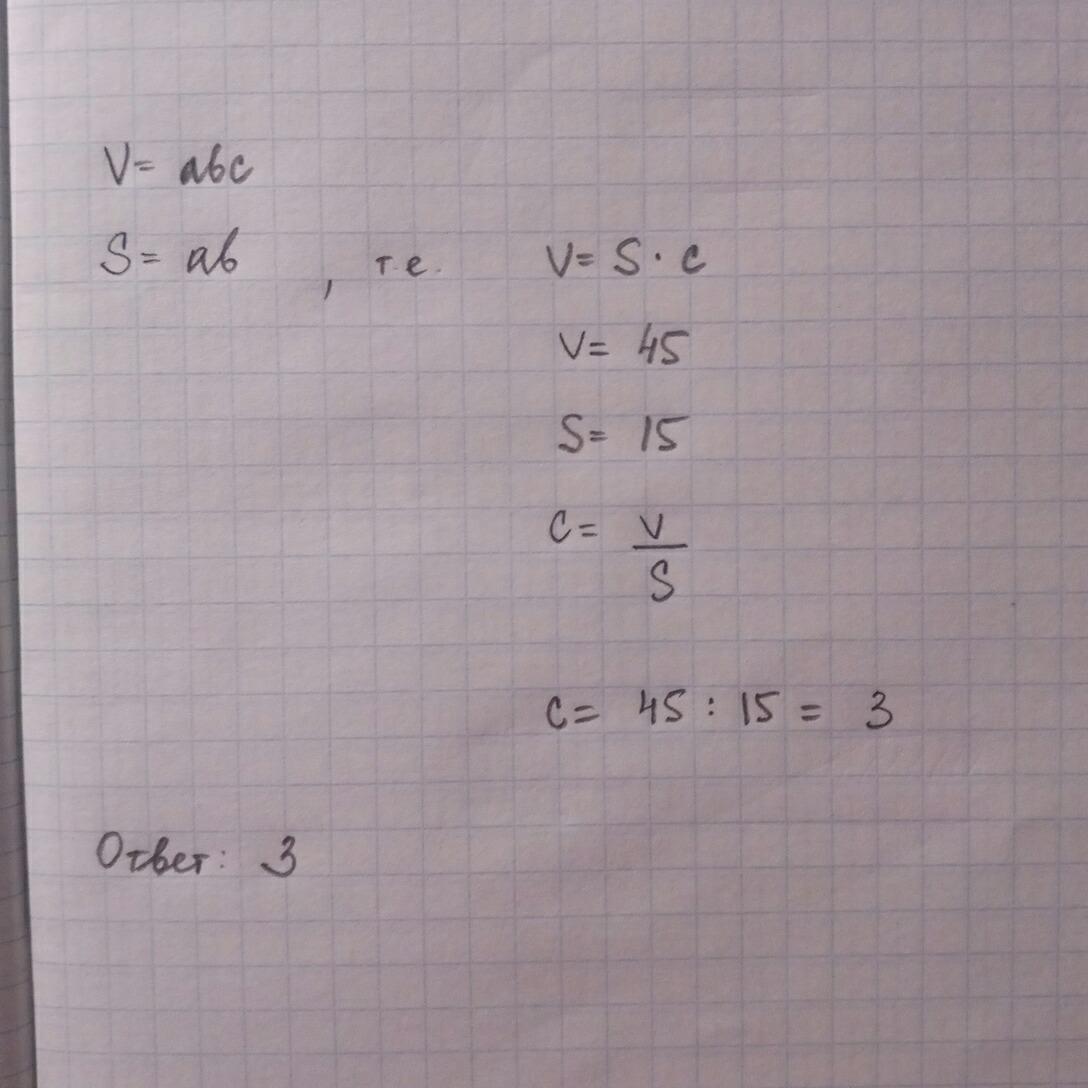 V= abc
S= ab , т.е. V= S · c
V= 45
S= 15
C= V/S
C= 45 : 15 = 3
Ответ: 3